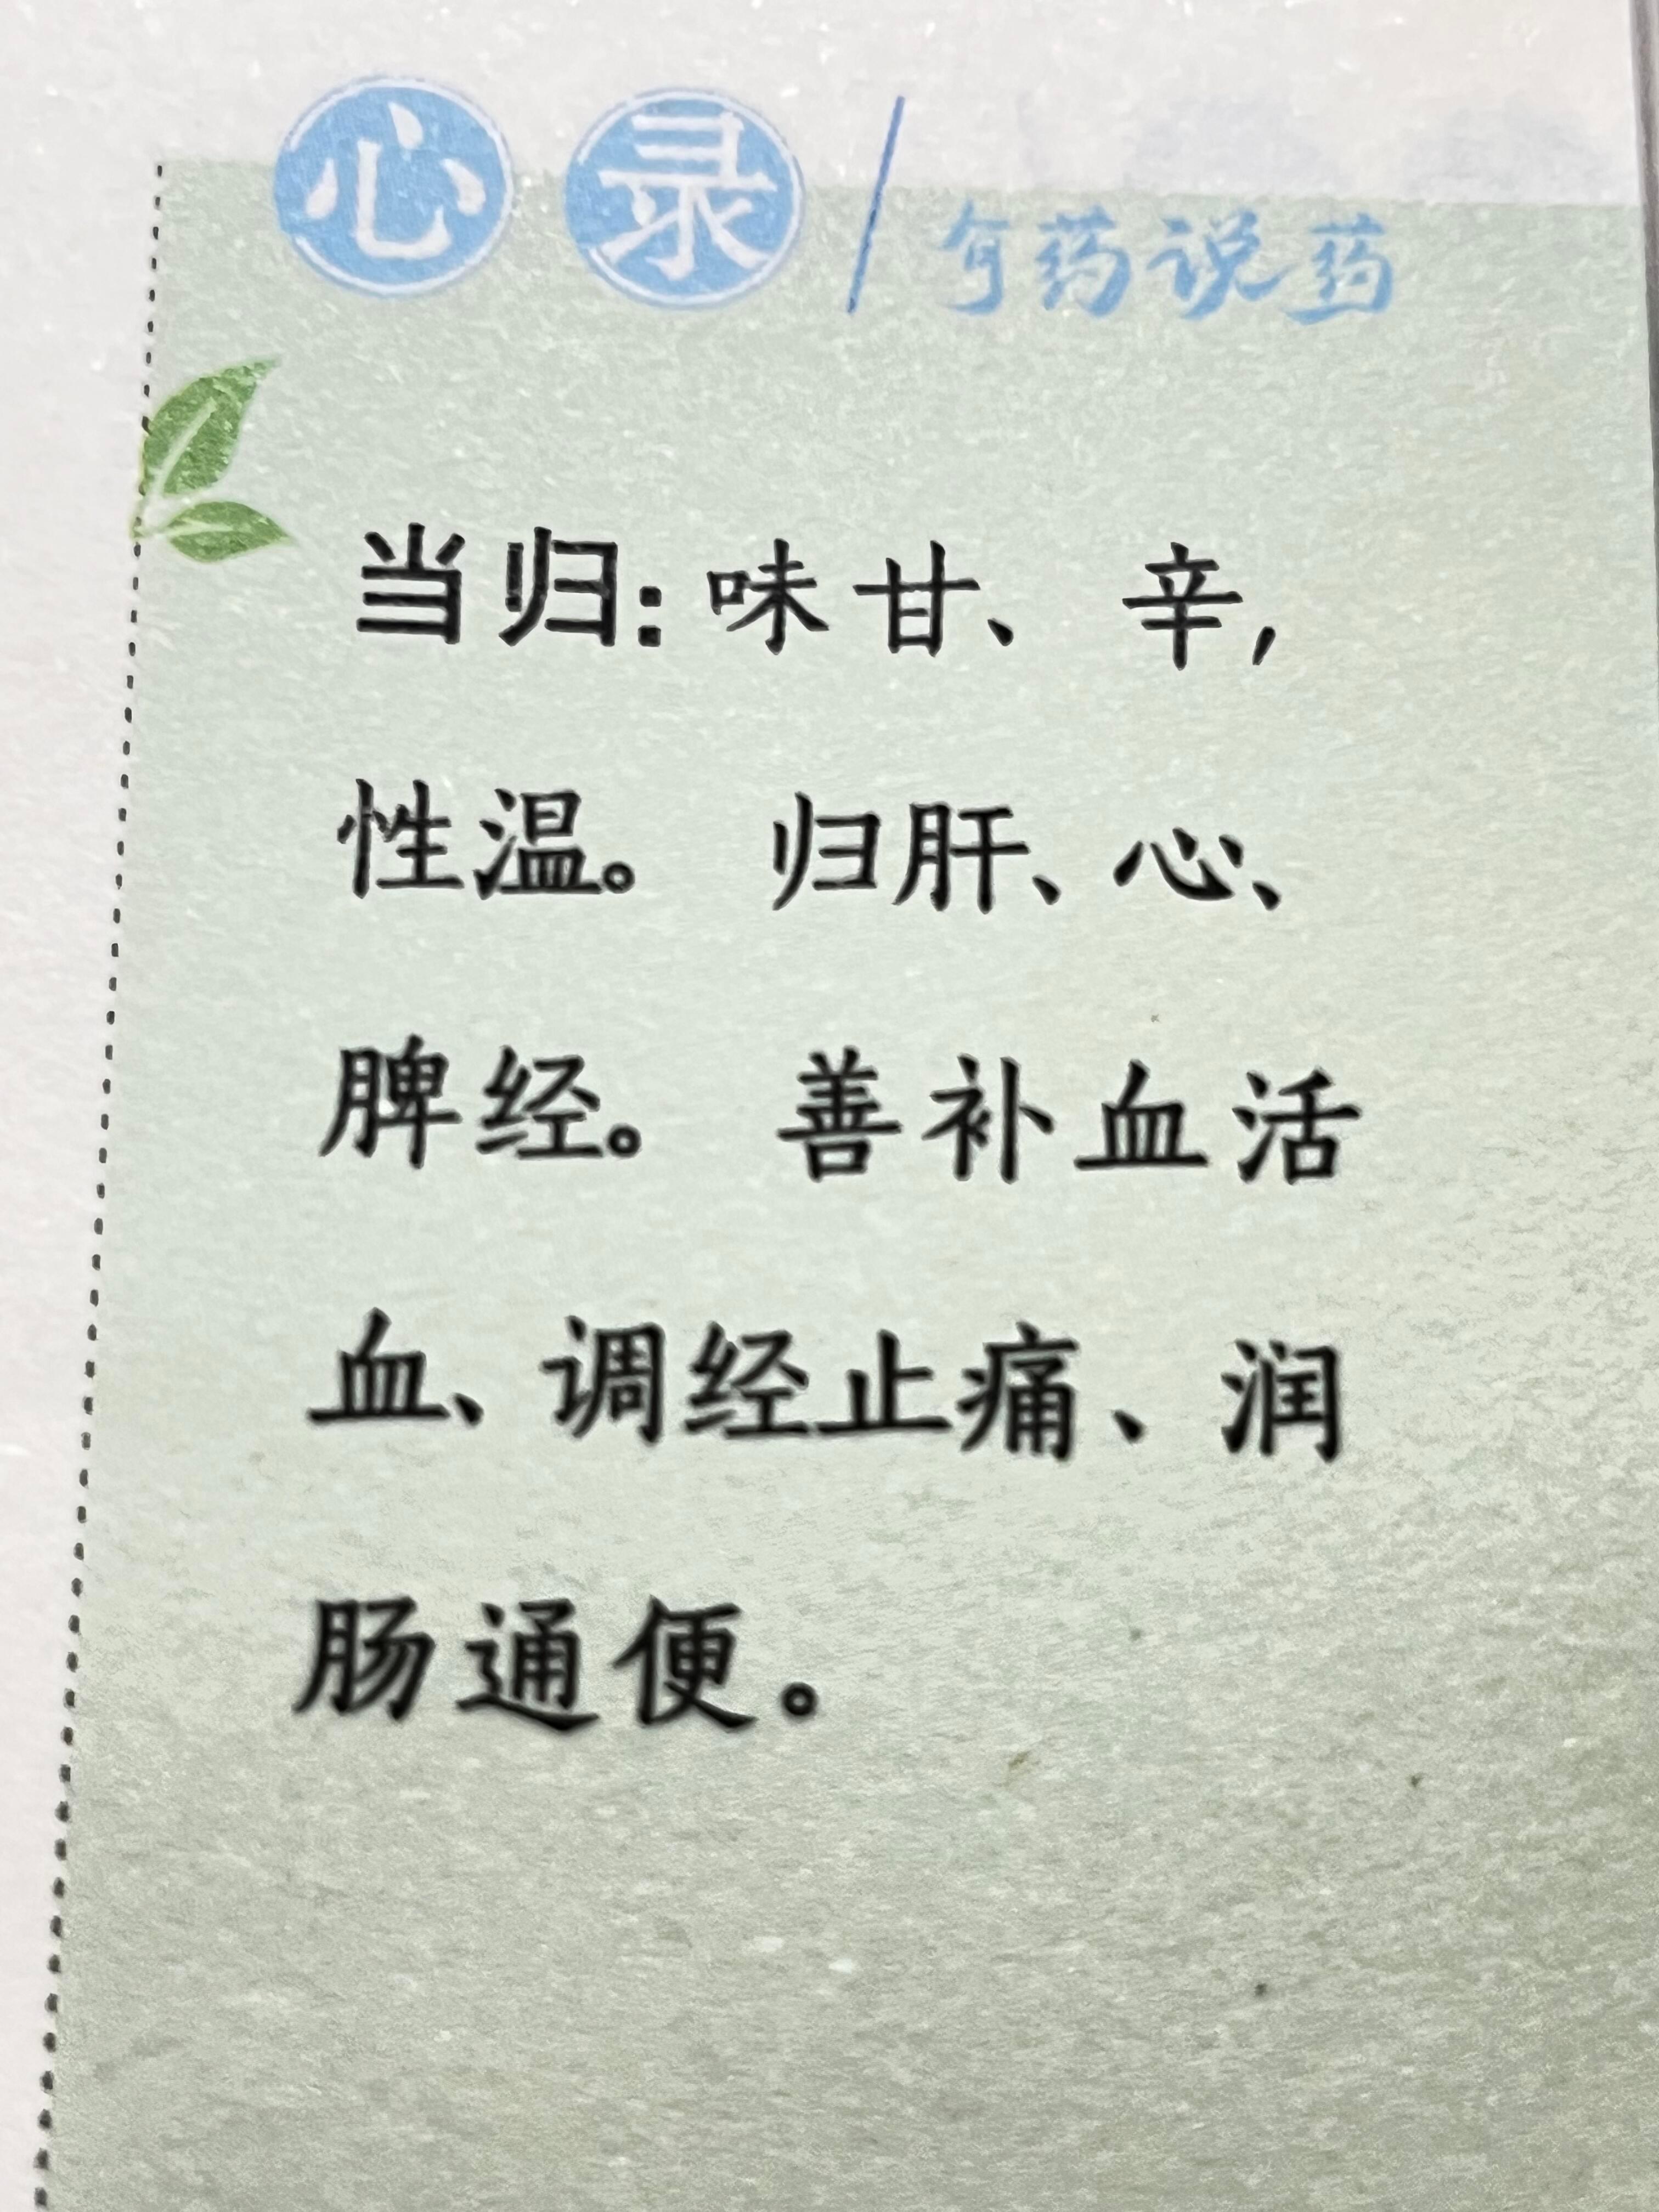 心录/有药说药
当归：味甘、辛，
性温。归肝、心、
脾经。善补血活
血、调经止痛、润
肠通便。